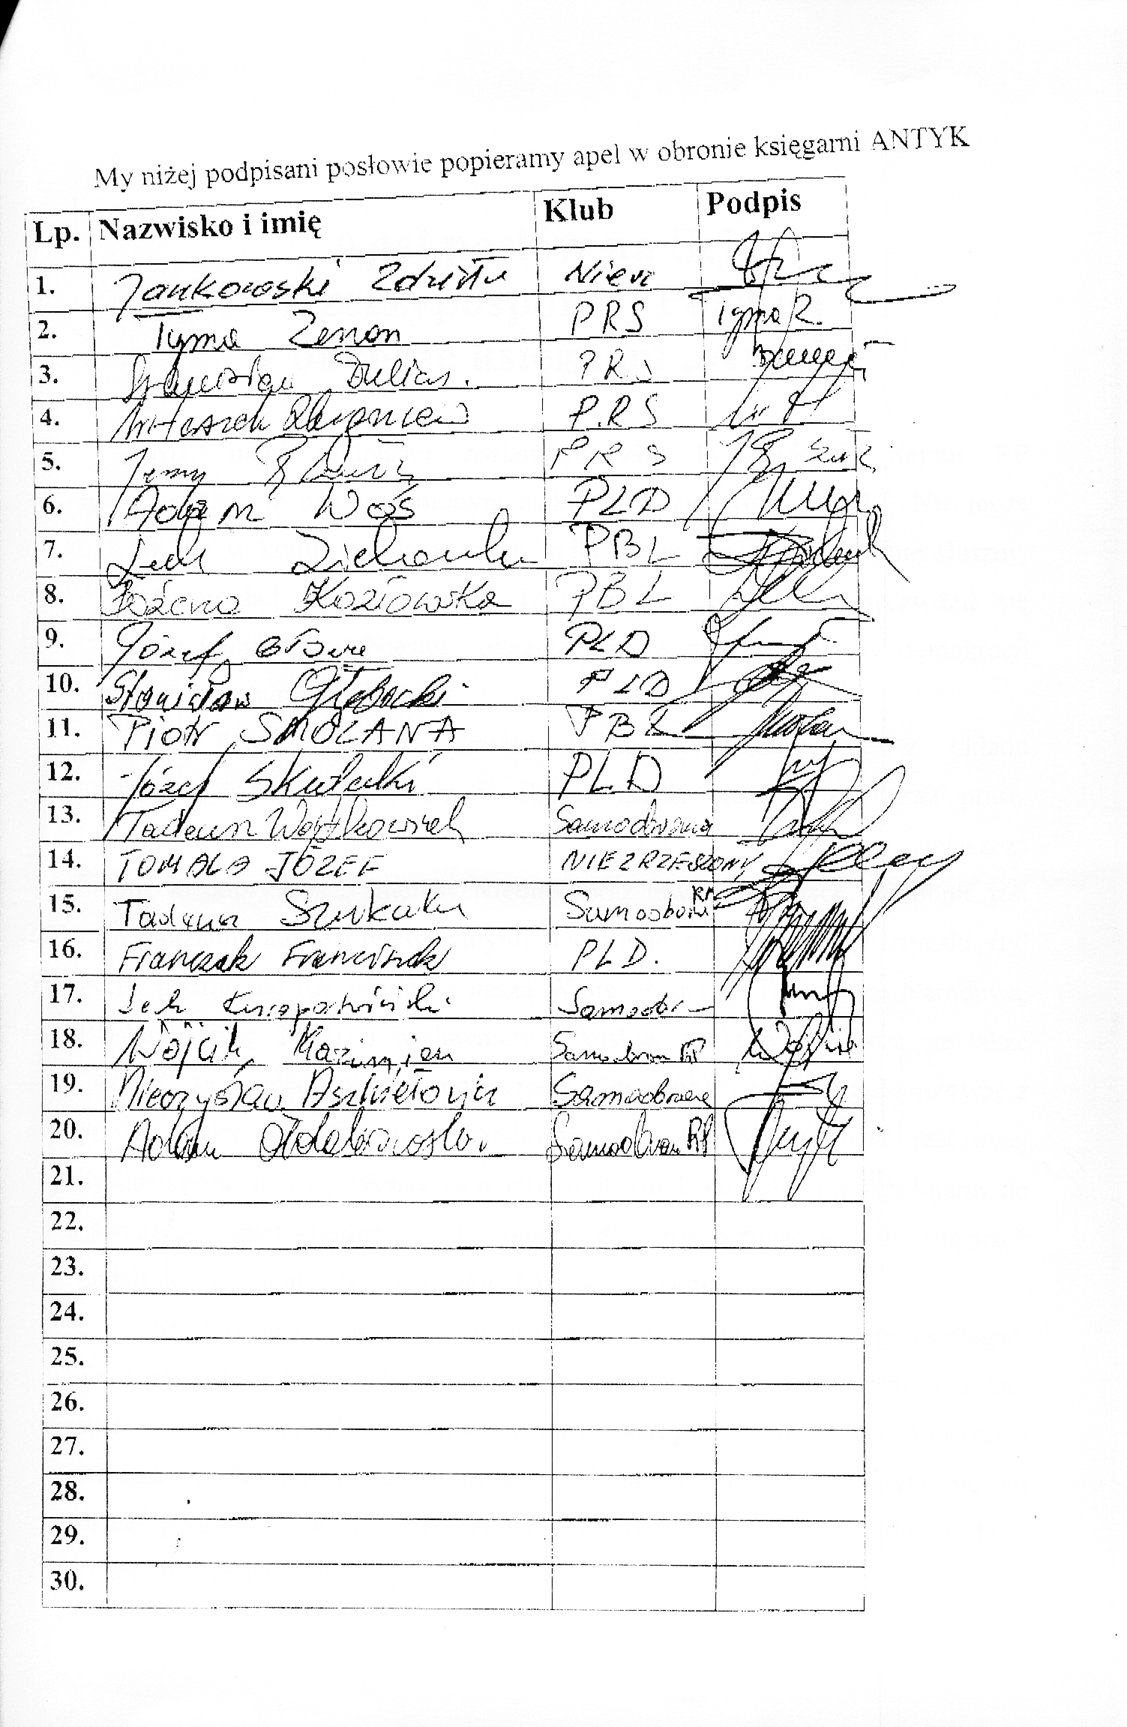 My niżej podpisani posłowie popieramy apel w obronie księgarni ANTYK
Lp. Nazwisko i imię Klub Podpis
1. Jankowski Zdzisław Niezr
2. Tyma Zenon PRS Tyma Z.
3. Stanisław Dulias. PRS
4. Witaszek Zbigniew P.RS
5. Jerzy PRS
6. Adam Woś PLD
7. Lech PBL
8. Bożena Kozłowska PBL
9. Józef Głowa PLD
10. Stanisław Głębocki PLD
11. Piotr SMOLANA PBL
12. Józef Skutecki PLD
13. Tadeusz Wojtkowiak Samoobrona
14. TOMALA JÓZEF NIEZRZESZONY
15. Tadeusz Szukała Samoobrona RP
16. Franczak Franciszek PLD.
17. Lech Samoobr
18. Wójcik Kazimierz Samoobrona RP
19. Mieczysław Aszkiełowicz Samoobrona
20. Adam Ołdakowski Samoobrona RP
21.
22.
23.
24.
25.
26.
27.
28.
29.
30.